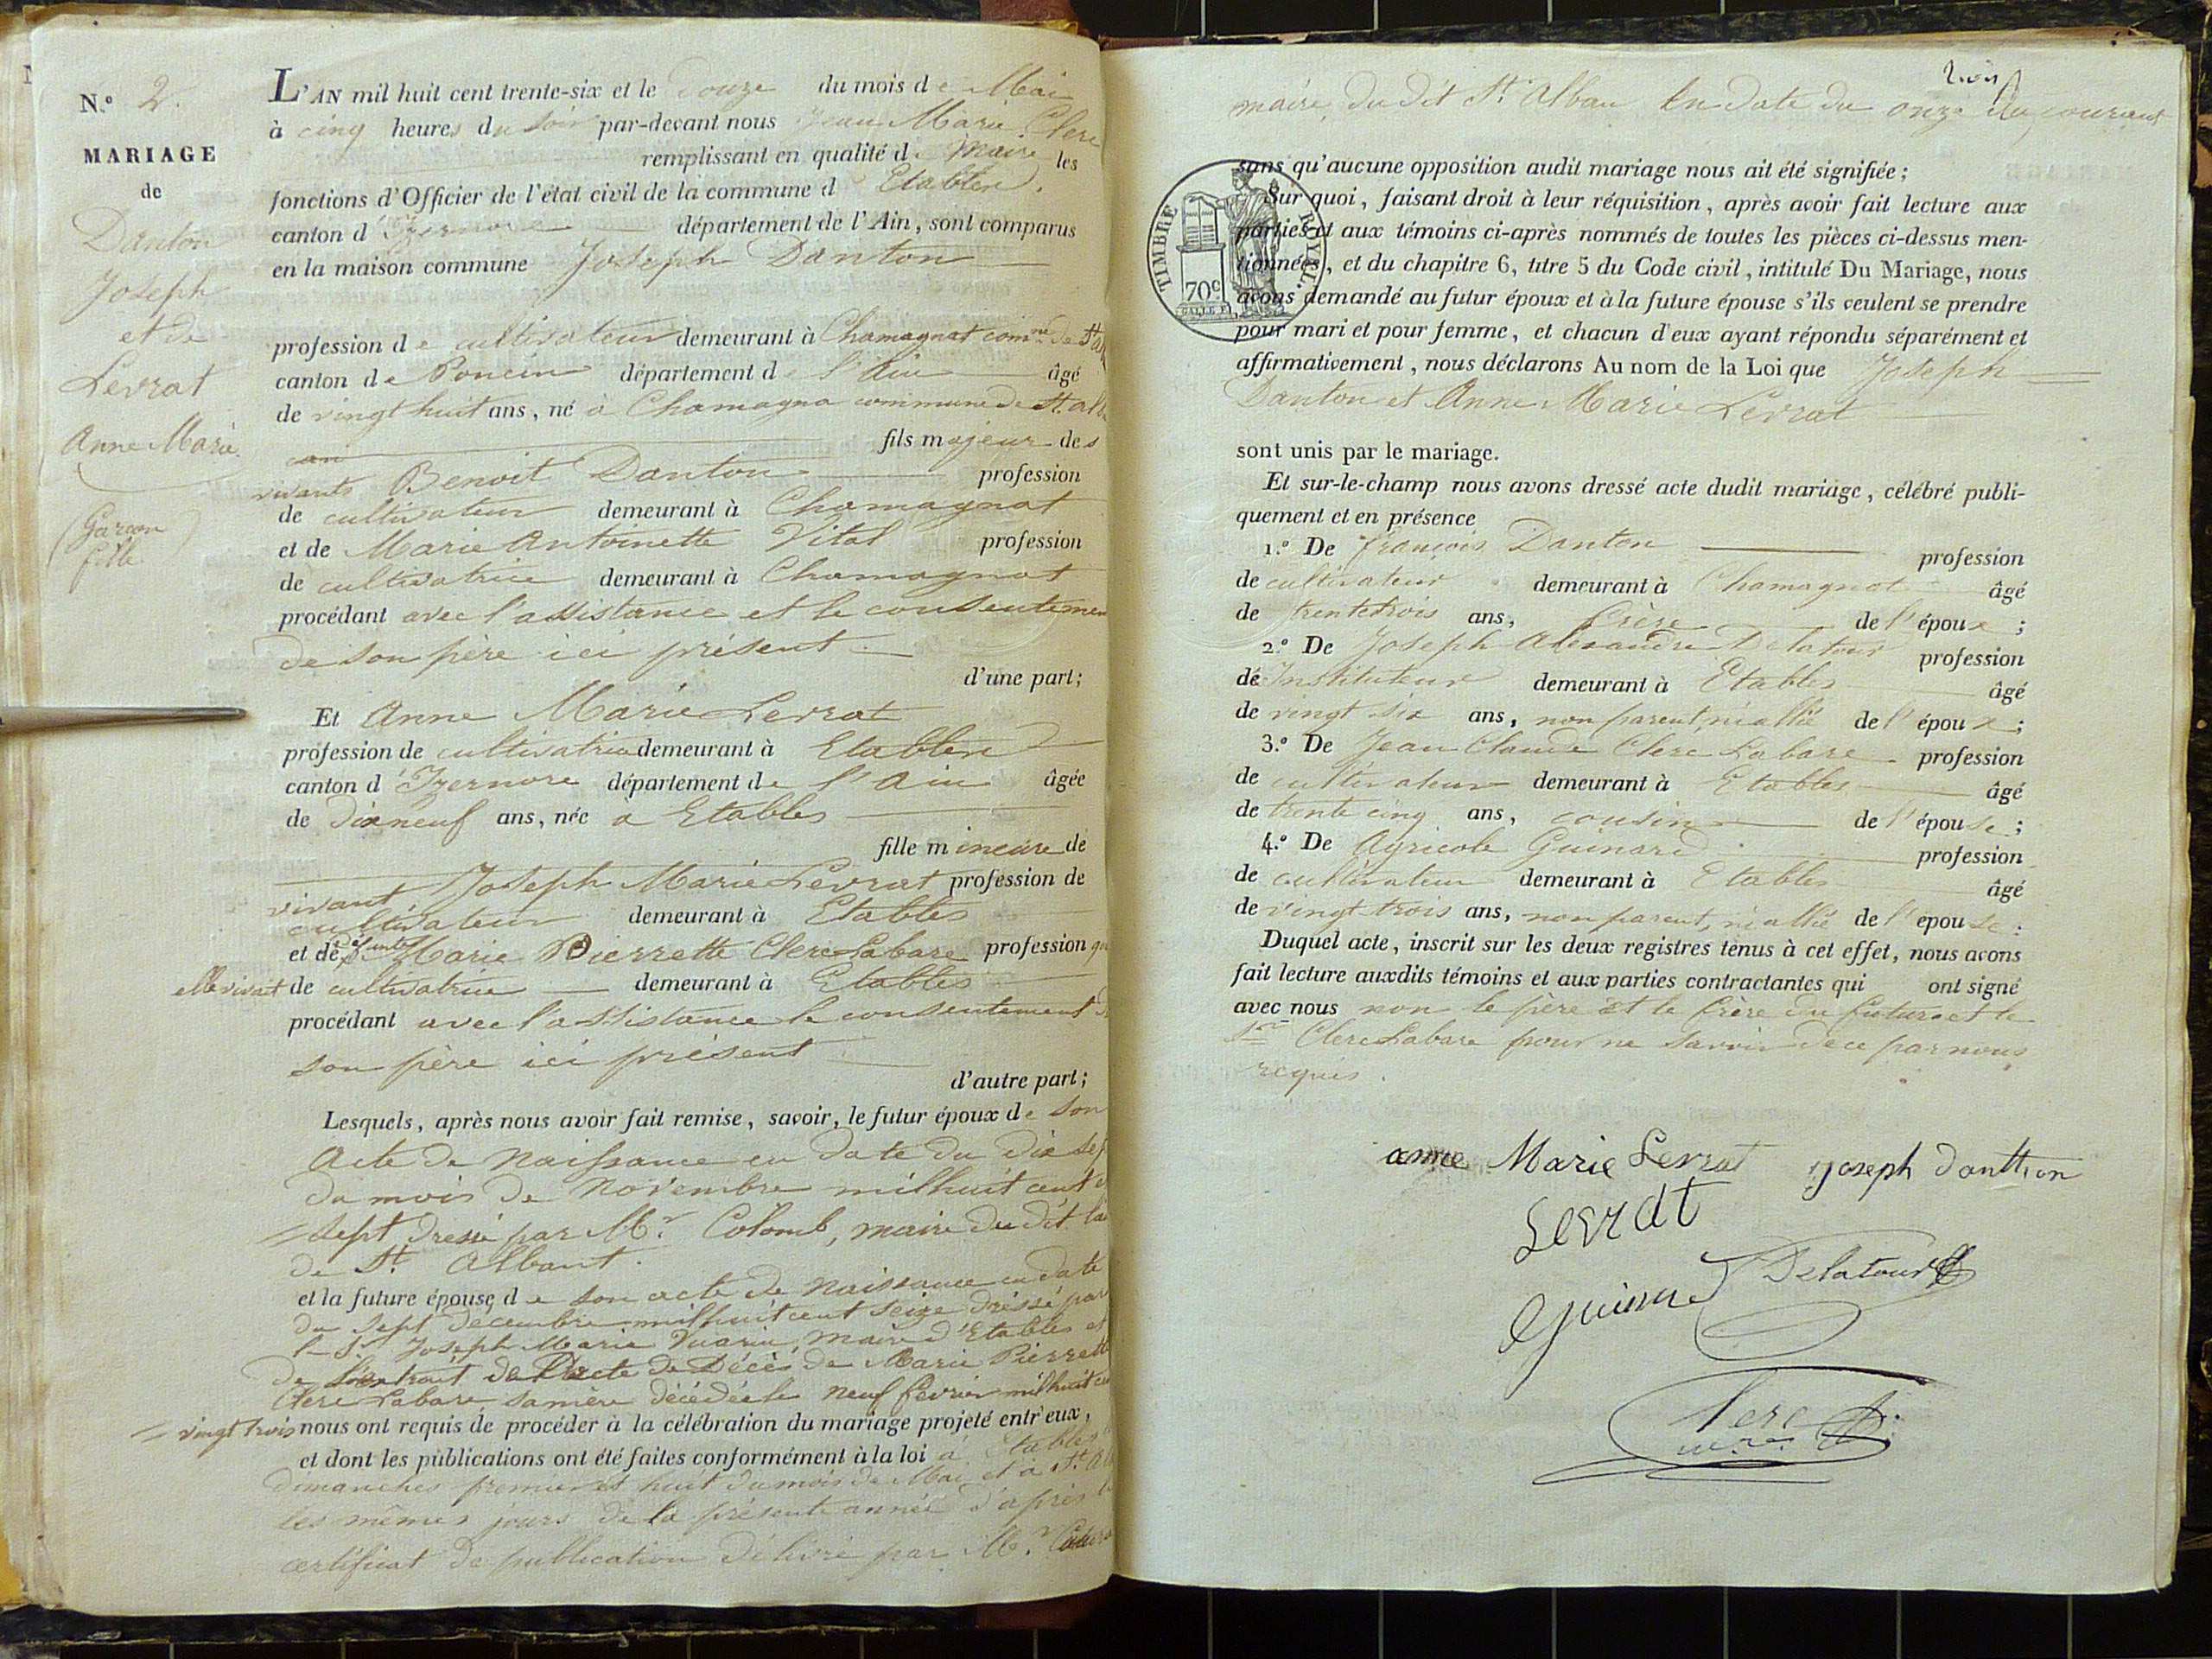 N.º 2.
MARIAGE
de
Danton
Joseph
et de
Levrat
Anne Marie
(Garçon
fille)
L'AN mil huit cent trente-six et le Douze du mois de Mai
à cinq heures du soir par-devant nous Jean Marie Clerc
remplissant en qualité de Maire les
fonctions d'Officier de l'état civil de la commune d Etables,
canton d'Izernore département de l'Ain, sont comparus
en la maison commune Joseph Danton
profession de cultivateur demeurant à Chamagnat com.ne de St
canton de Poncin département de l'Ain âgé
de vingt huit ans, né à Chamagna commune de St. alb
an fils majeur des
vivants Benoit Danton profession
de cultivateur demeurant à Chamagnat
et de Marie Antoinette Vital profession
de cultivatrice demeurant à Chamagnat
procédant avec l'assistance et le consentement
de son père ici présent
d'une part;
Et Anne Marie Levrat
profession de cultivatrice demeurant à Etables
canton d'Izernore département de l'Ain âgée
de Dix neuf ans, née à Etables
fille mineure de
vivant Joseph Marie Levrat profession de
cultivateur demeurant à Etables
et de défunte Marie Pierrette Clerc Labare profession qu
elle vivait de cultivatrice demeurant à Etables
procédant avec l'assistance le consentement d
son père ici présent
d'autre part;
Lesquels, après nous avoir fait remise, savoir, le futur époux de son
Acte de Naissance en date du dix sep
du mois de Novembre mil huit cent
= sept, Dressé par Mr Colomb, maire du dit
de St. Albant.
et la future épouse de son acte de Naissance en date
du sept Decembre mil huit cent seize dréssé par
le Sr Joseph Marie Vuarin, Maire d'Etables et
de l'extrait de l'acte de Décès de Marie Pierrette
Clerc Labare sa mère décédée le neuf février mil huit cen
= vingt trois nous ont requis de procéder à la célébration du mariage projeté entr'eux,
et dont les publications ont été faites conformément à la loi à Etables
dimanches premier et huit du mois de Mai et à St. Al
les mêmes jours de la présente année d'après
certificat de publication délivré par Mr.
maire du dit St. Alban En date du onze du courant
TIMBRE ROYAL.
70c
sans qu'aucune opposition audit mariage nous ait été signifiée;
Sur quoi, faisant droit à leur réquisition, après avoir fait lecture aux
parties et aux témoins ci-après nommés de toutes les pièces ci-dessus men-
tionnées, et du chapitre 6, titre 5 du Code civil, intitulé Du Mariage, nous
avons demandé au futur époux et à la future épouse s'ils veulent se prendre
pour mari et pour femme, et chacun d'eux ayant répondu séparément et
affirmativement, nous déclarons Au nom de la Loi que Joseph
Danton et Anne Marie Levrat
sont unis par le mariage.
Et sur-le-champ nous avons dressé acte dudit mariage, célébré publi-
quement et en présence
1.º De françois Danton profession
de cultivateur demeurant à Chamagnat âgé
de trente trois ans, frère de l'époux;
2.º De Joseph Alexandre Delatour profession
de Instituteur demeurant à Etables âgé
de vingt six ans, non parent, ni allié de l'époux;
3.º De Jean Claude Clerc Labare profession
de cultivateur demeurant à Etables âgé
de trente cinq ans, cousin de l'épouse;
4.º De Agricole Guinard profession
de cultivateur demeurant à Etables âgé
de vingt trois ans, non parent, ni allié de l'epouse.
Duquel acte, inscrit sur les deux registres tenus à cet effet, nous avons
fait lecture auxdits témoins et aux parties contractantes qui ont signé
avec nous non le père et le frère du futur et le
Sr Clerc Labare pour ne savoir de ce par nous
requis.
anne Marie Levrat joseph dantton
Levrat
Guinard Delatour
Clerc